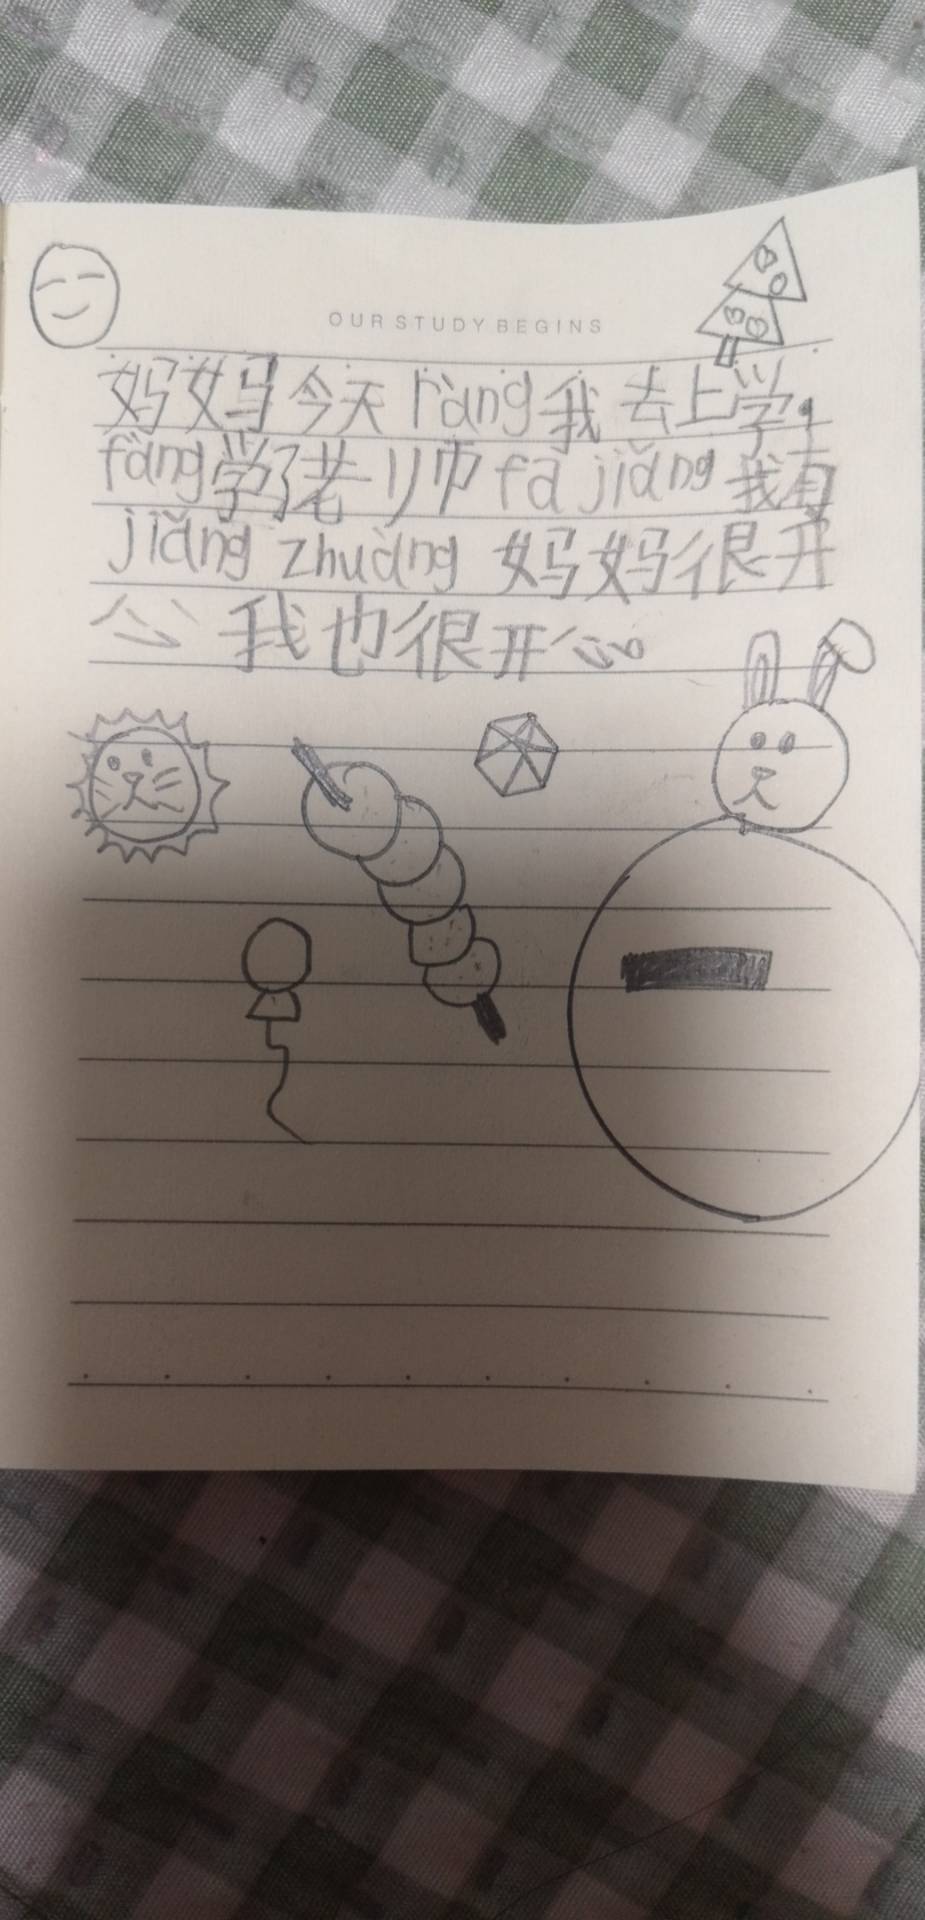 OUR STUDY BEGINS
妈妈今天ràng我去上学,
fàng学了老师fā jiǎng 我有
jiǎng zhuàng 妈妈很开
心 我也很开心